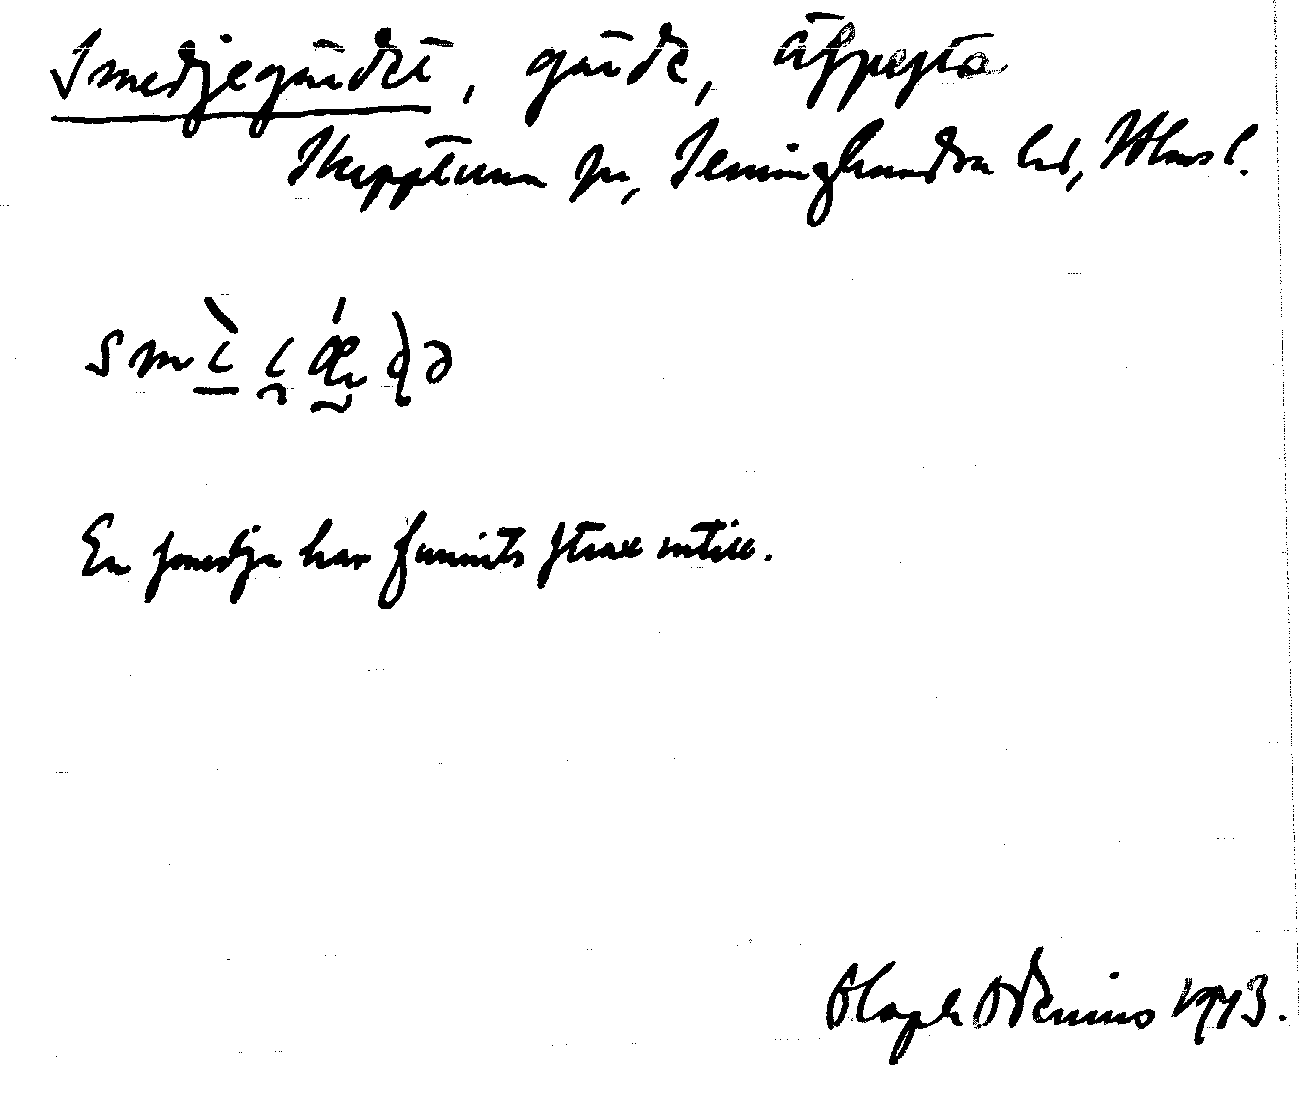 Smedjegärdet, gärde, Äspesta
Skepptuna sn, Seminghundra hd, Uppl.
En smedja har funnits strax intill.
Oloph Odenius 1943.